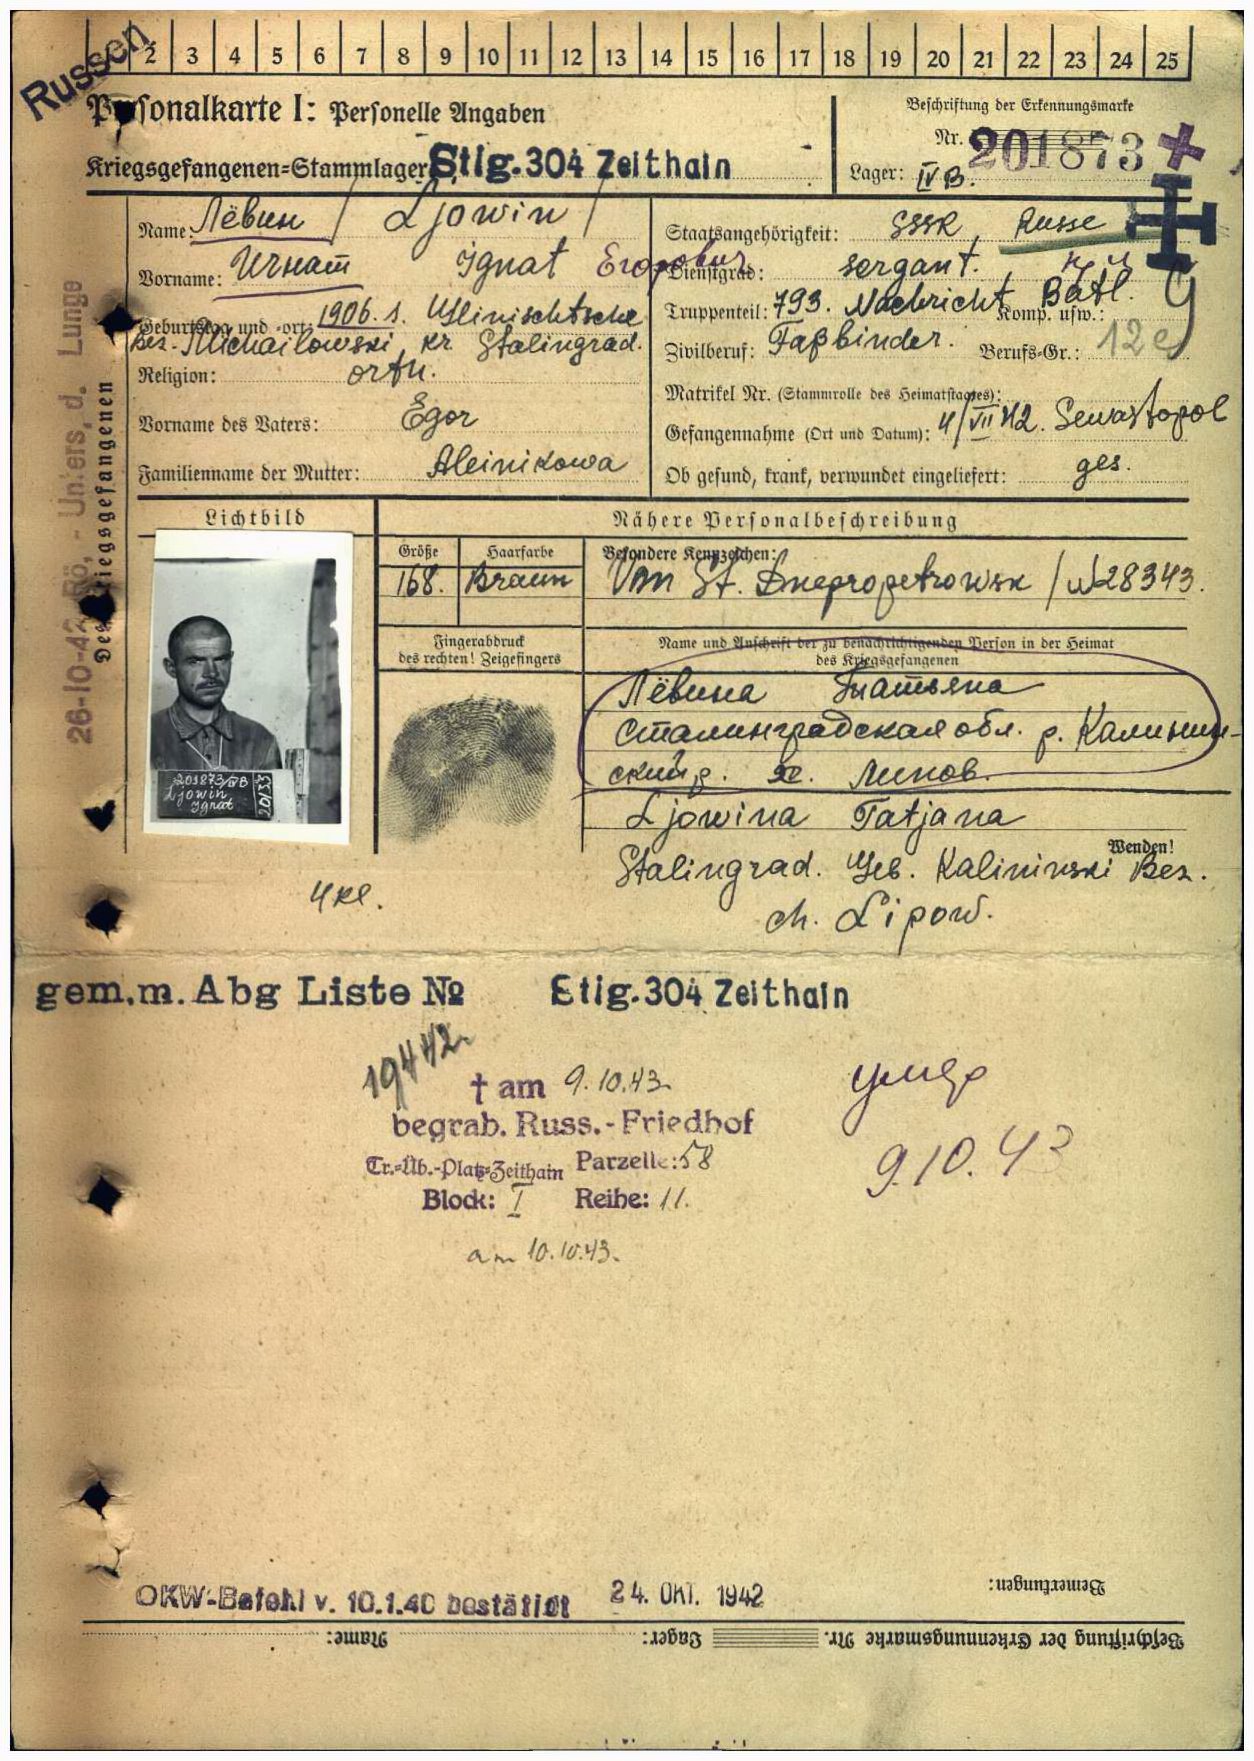 Russen
2 3 4 5 6 7 8 9 10 11 12 13 14 15 16 17 18 19 20 21 22 23 24 25
Personalkarte I: Personelle Angaben
Kriegsgefangenen-Stammlager: Stlg. 304 Zeithain
Beschriftung der Erkennungsmarke
Nr. 201873
Lager: IV B.
Name: Лёвин / Ljowin /
Vorname: Игнат Ignat Егорович
Geburtstag und -ort: 1906. s.
Bez. Michailowski, kr Stalingrad.
Religion: orth.
Vorname des Vaters: Egor
Familienname der Mutter: Aleinikowa
Staatsangehörigkeit: SSSR, Russe
Dienstgrad: sergant.
Truppenteil: 793. Nachricht Batl. Komp. usw.:
Zivilberuf: Faßbinder. Berufs-Gr.: 12e
Matrikel Nr. (Stammrolle des Heimatstaates):
Gefangennahme (Ort und Datum): 4/VII 42. Sewastopol
Ob gesund, krank, verwundet eingeliefert: ges.
26-10-42 Rö, - Unters. d. Lunge
Des Kriegsgefangenen
Lichtbild
201873/IVB
Ljowin
Ignat
Nähere Personalbeschreibung
Größe Haarfarbe Besondere Kennzeichen:
168. Braun Vom St. Dnepropetrowsk / 28343.
Fingerabdruck
des rechten! Zeigefingers
Name und Anschrift der zu benachrichtigenden Person in der Heimat
des Kriegsgefangenen
Лёвина Татьяна
Сталинградская обл. р. Калинин-
ский р. х. Липов.
Ljowina Tatjana
Wenden!
Stalingrad. Geb. Kalininski Bez.
ch. Lipow.
4 kl.
gem. m. Abg Liste № Stlg. 304 Zeithain
19442.
† am 9.10.43.
begrab. Russ.-Friedhof
Tr.-Üb.-Platz-Zeithain Parzelle: 58
Block: I Reihe: 11.
am 10.10.43.
умер
9.10.43
OKW-Befehl v. 10.1.40 bestätigt 24. Okt. 1942
Bemerkungen:
Beschriftung der Erkennungsmarke Nr. Lager: Name: